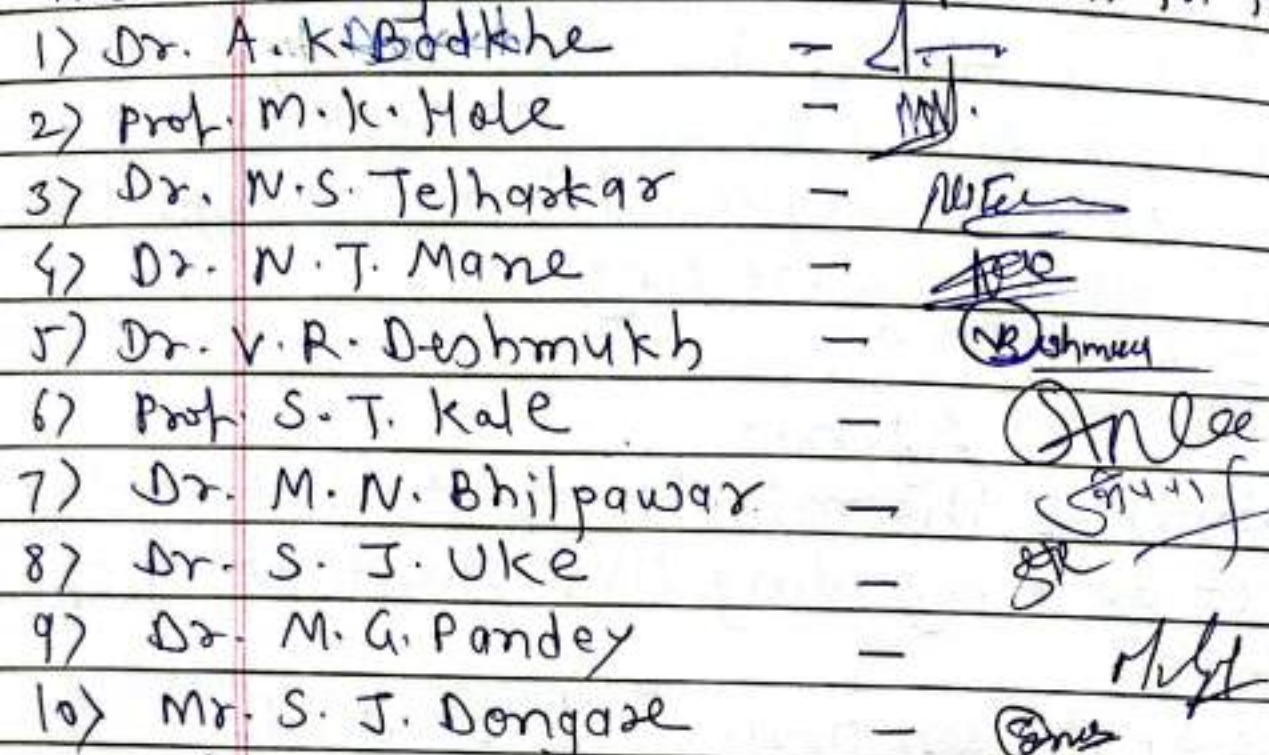 1) Dr. A. K. Bodkhe -
2) Prof. M. K. Hole -
3) Dr. N.S. Telharkar -
4) Dr. N. T. Mane -
5) Dr. V. R. Deshmukh -
6) Prof. S. T. Kale -
7) Dr. M. N. Bhilpawar -
8) Dr. S. J. Uke -
9) Dr. M. G. Pandey -
10) Mr. S. J. Dongare -